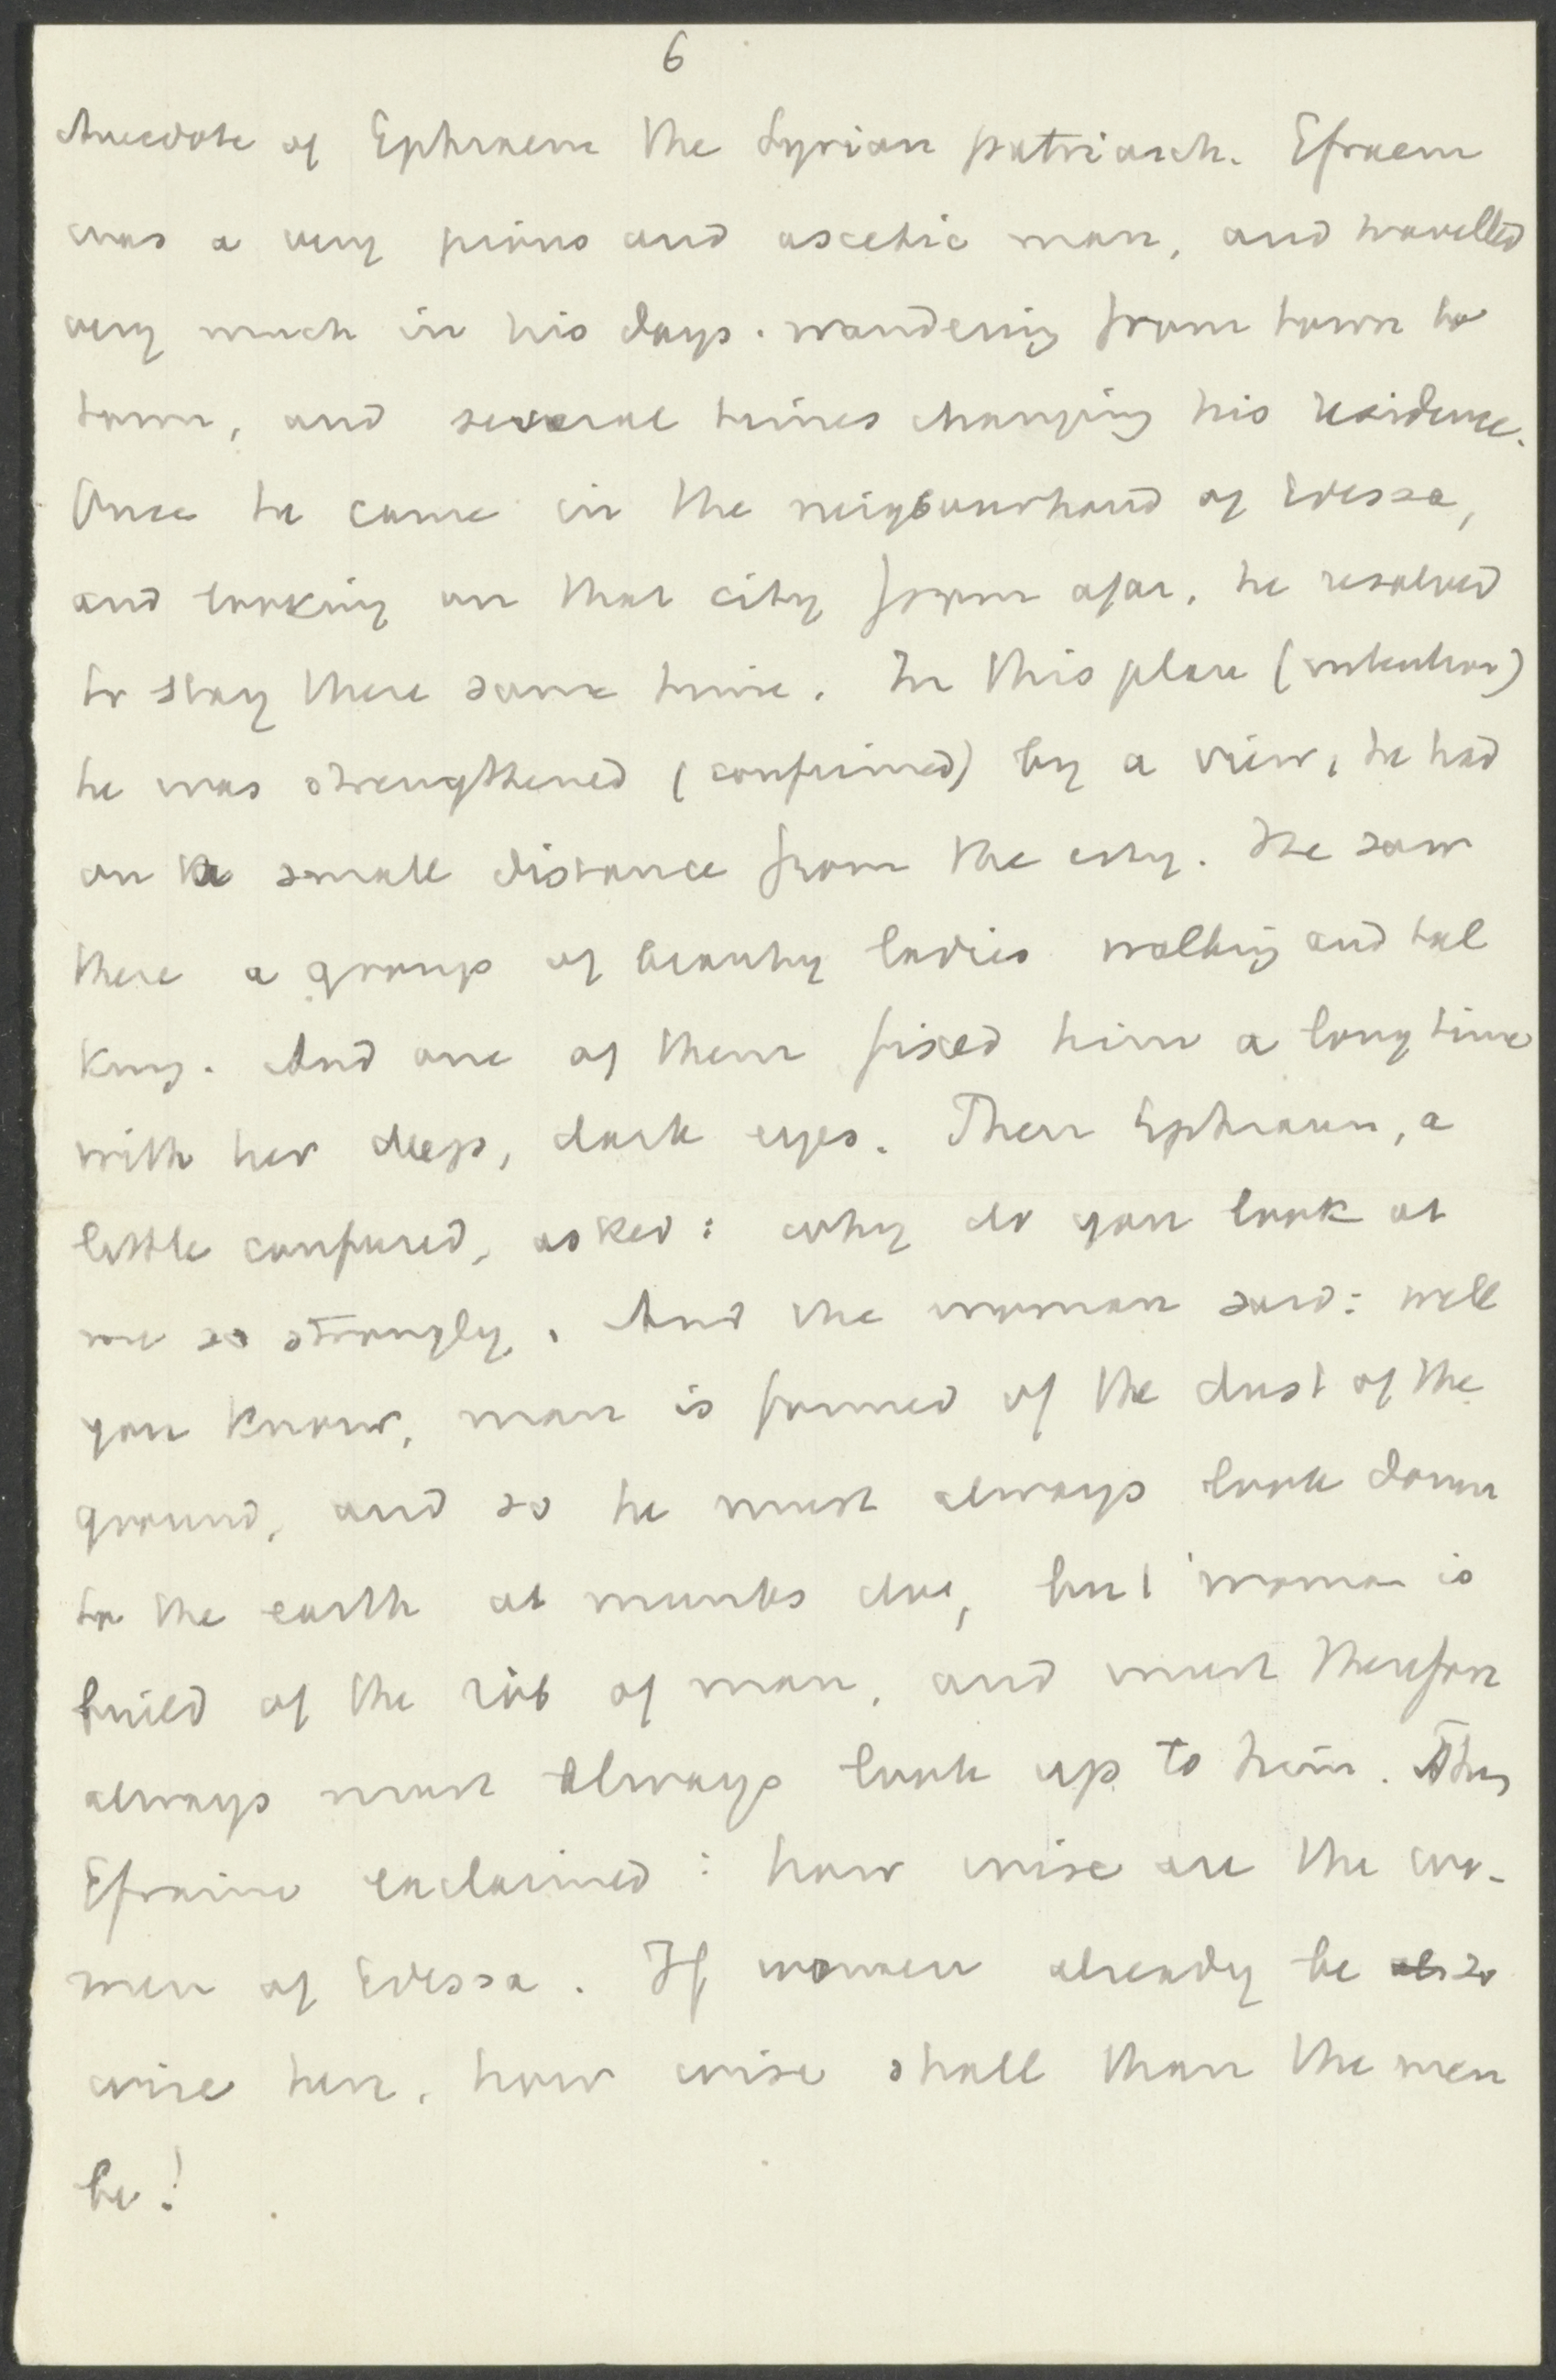 6
Anecdote of Ephraem the Syrian patriarch. Efraem
was a very pious and ascetic man, and travelled
very much in his days. wandering from town to
town, and several times changing his residence.
Once he came in the neigbourhood of Edessa,
and looking on that city from afar, he resolved
to stay there some time. In this place (intention)
he was strengthened (confirmed) by a view, he had
on a small distance from the city. He saw
there a group of beauty ladies walking and tal
king. And one of them fixed him a long time
with her deep, dark eyes. Then Ephraem, a
little confused, asked: why do you look at
me so strongly. And the woman said: well
you know, man is formed of the dust of the
ground, and so he must always look down
to the earth at munks doe, but woman is
build of the rib of man, and must therefore
always must always look up to him. Thus
Efraim exclaimed: how wise are the wo-
men of Edessa. If women already be so
wise her, how wise shall than the men
be!